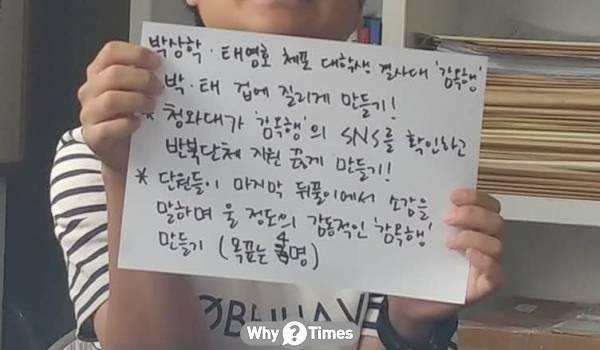 박상학·태영호 체포 대학생 결사대 '감옥행'
박·태 겁에 질리게 만들기!
* 청와대가 '감옥행'의 SNS를 확인하고
반북단체 지원 끊게 만들기!
* 단원들이 마지막 뒤풀이에서 소감을
말하며 울 정도의 감동적인 '감옥행'
만들기 (목표는 4명)
Why ? Times